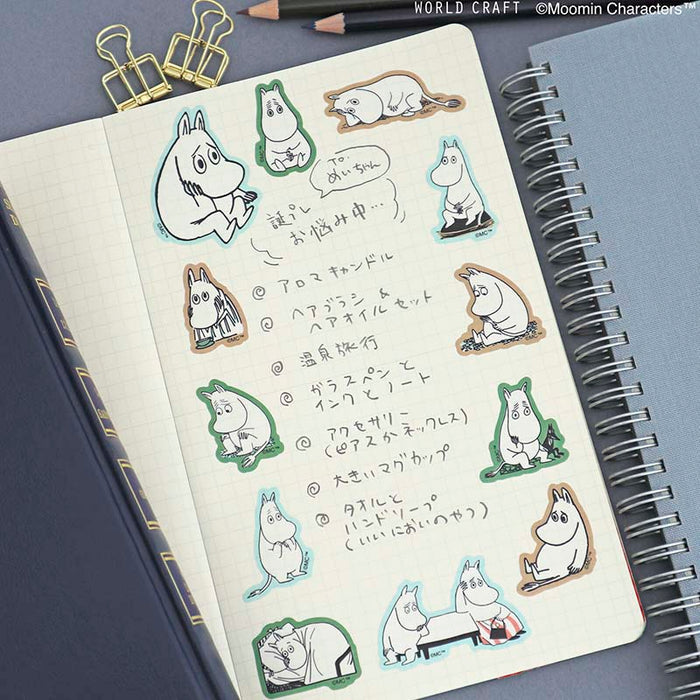 WORLD CRAFT ©Moomin Characters™
to.
めいちゃん
誕プレ
お悩み中…
アロマキャンドル
ヘアブラシ &
ヘアオイルセット
温泉旅行
ガラスペンと
インクとノート
アクセサリー
(ピアスかネックレス)
大きいマグカップ
タオルと
ハンドソープ
(いいにおいのやつ)